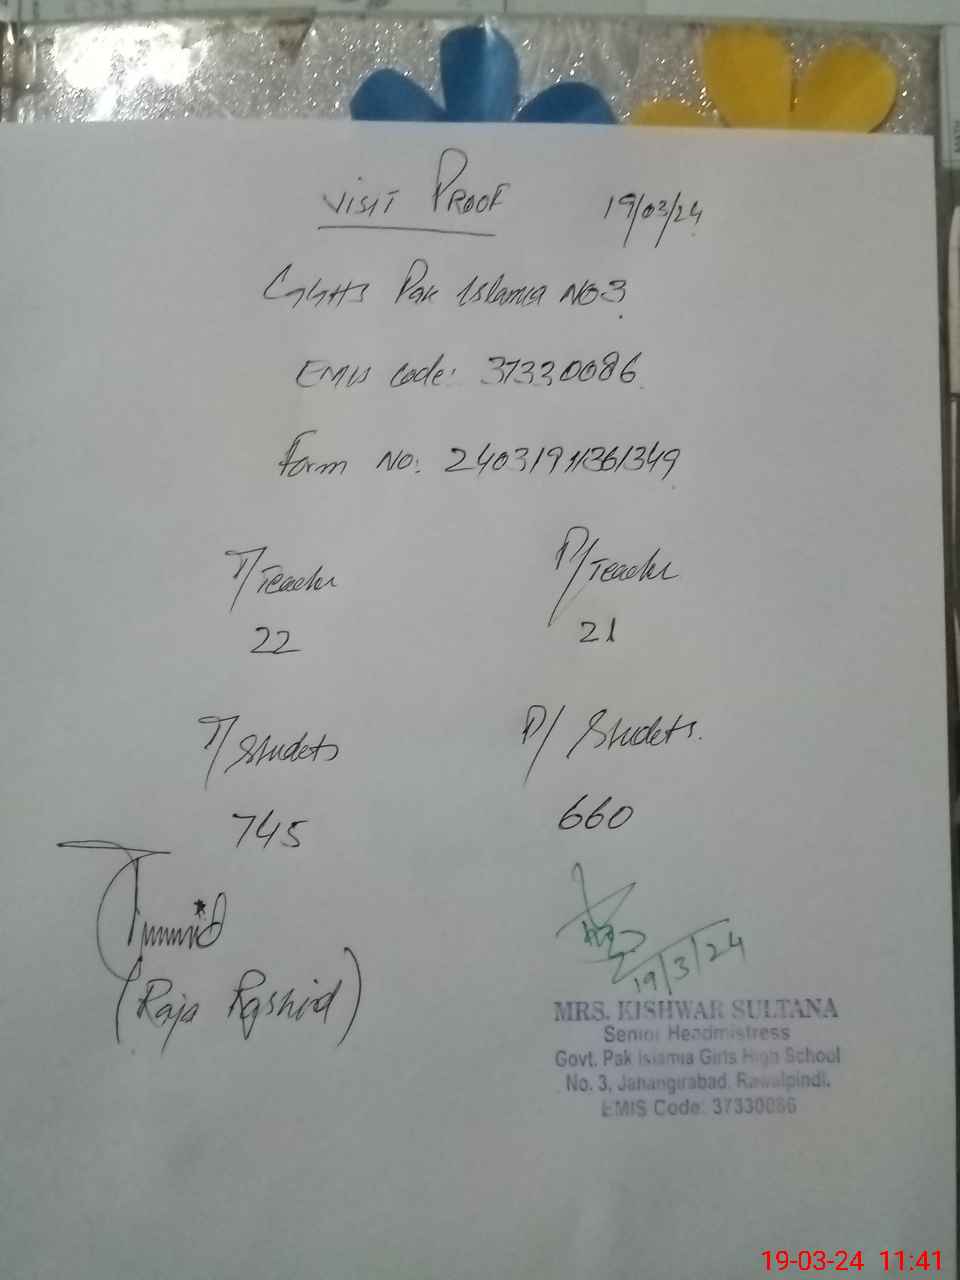 VISIT PROOF 19/03/24
GGHS Pak Islamia NO 3
EMIS Code: 37330086
Form NO: 24031911361349
T/Teacher P/Teacher
22 21
T/Studets P/Studets.
745 660
(Raja Rashid)
19/3/24
MRS. KISHWAR SULTANA
Senior Headmistress
Govt. Pak Islamia Girls High School
No. 3, Jahangirabad, Rawalpindi.
EMIS Code: 37330086
19-03-24 11:41